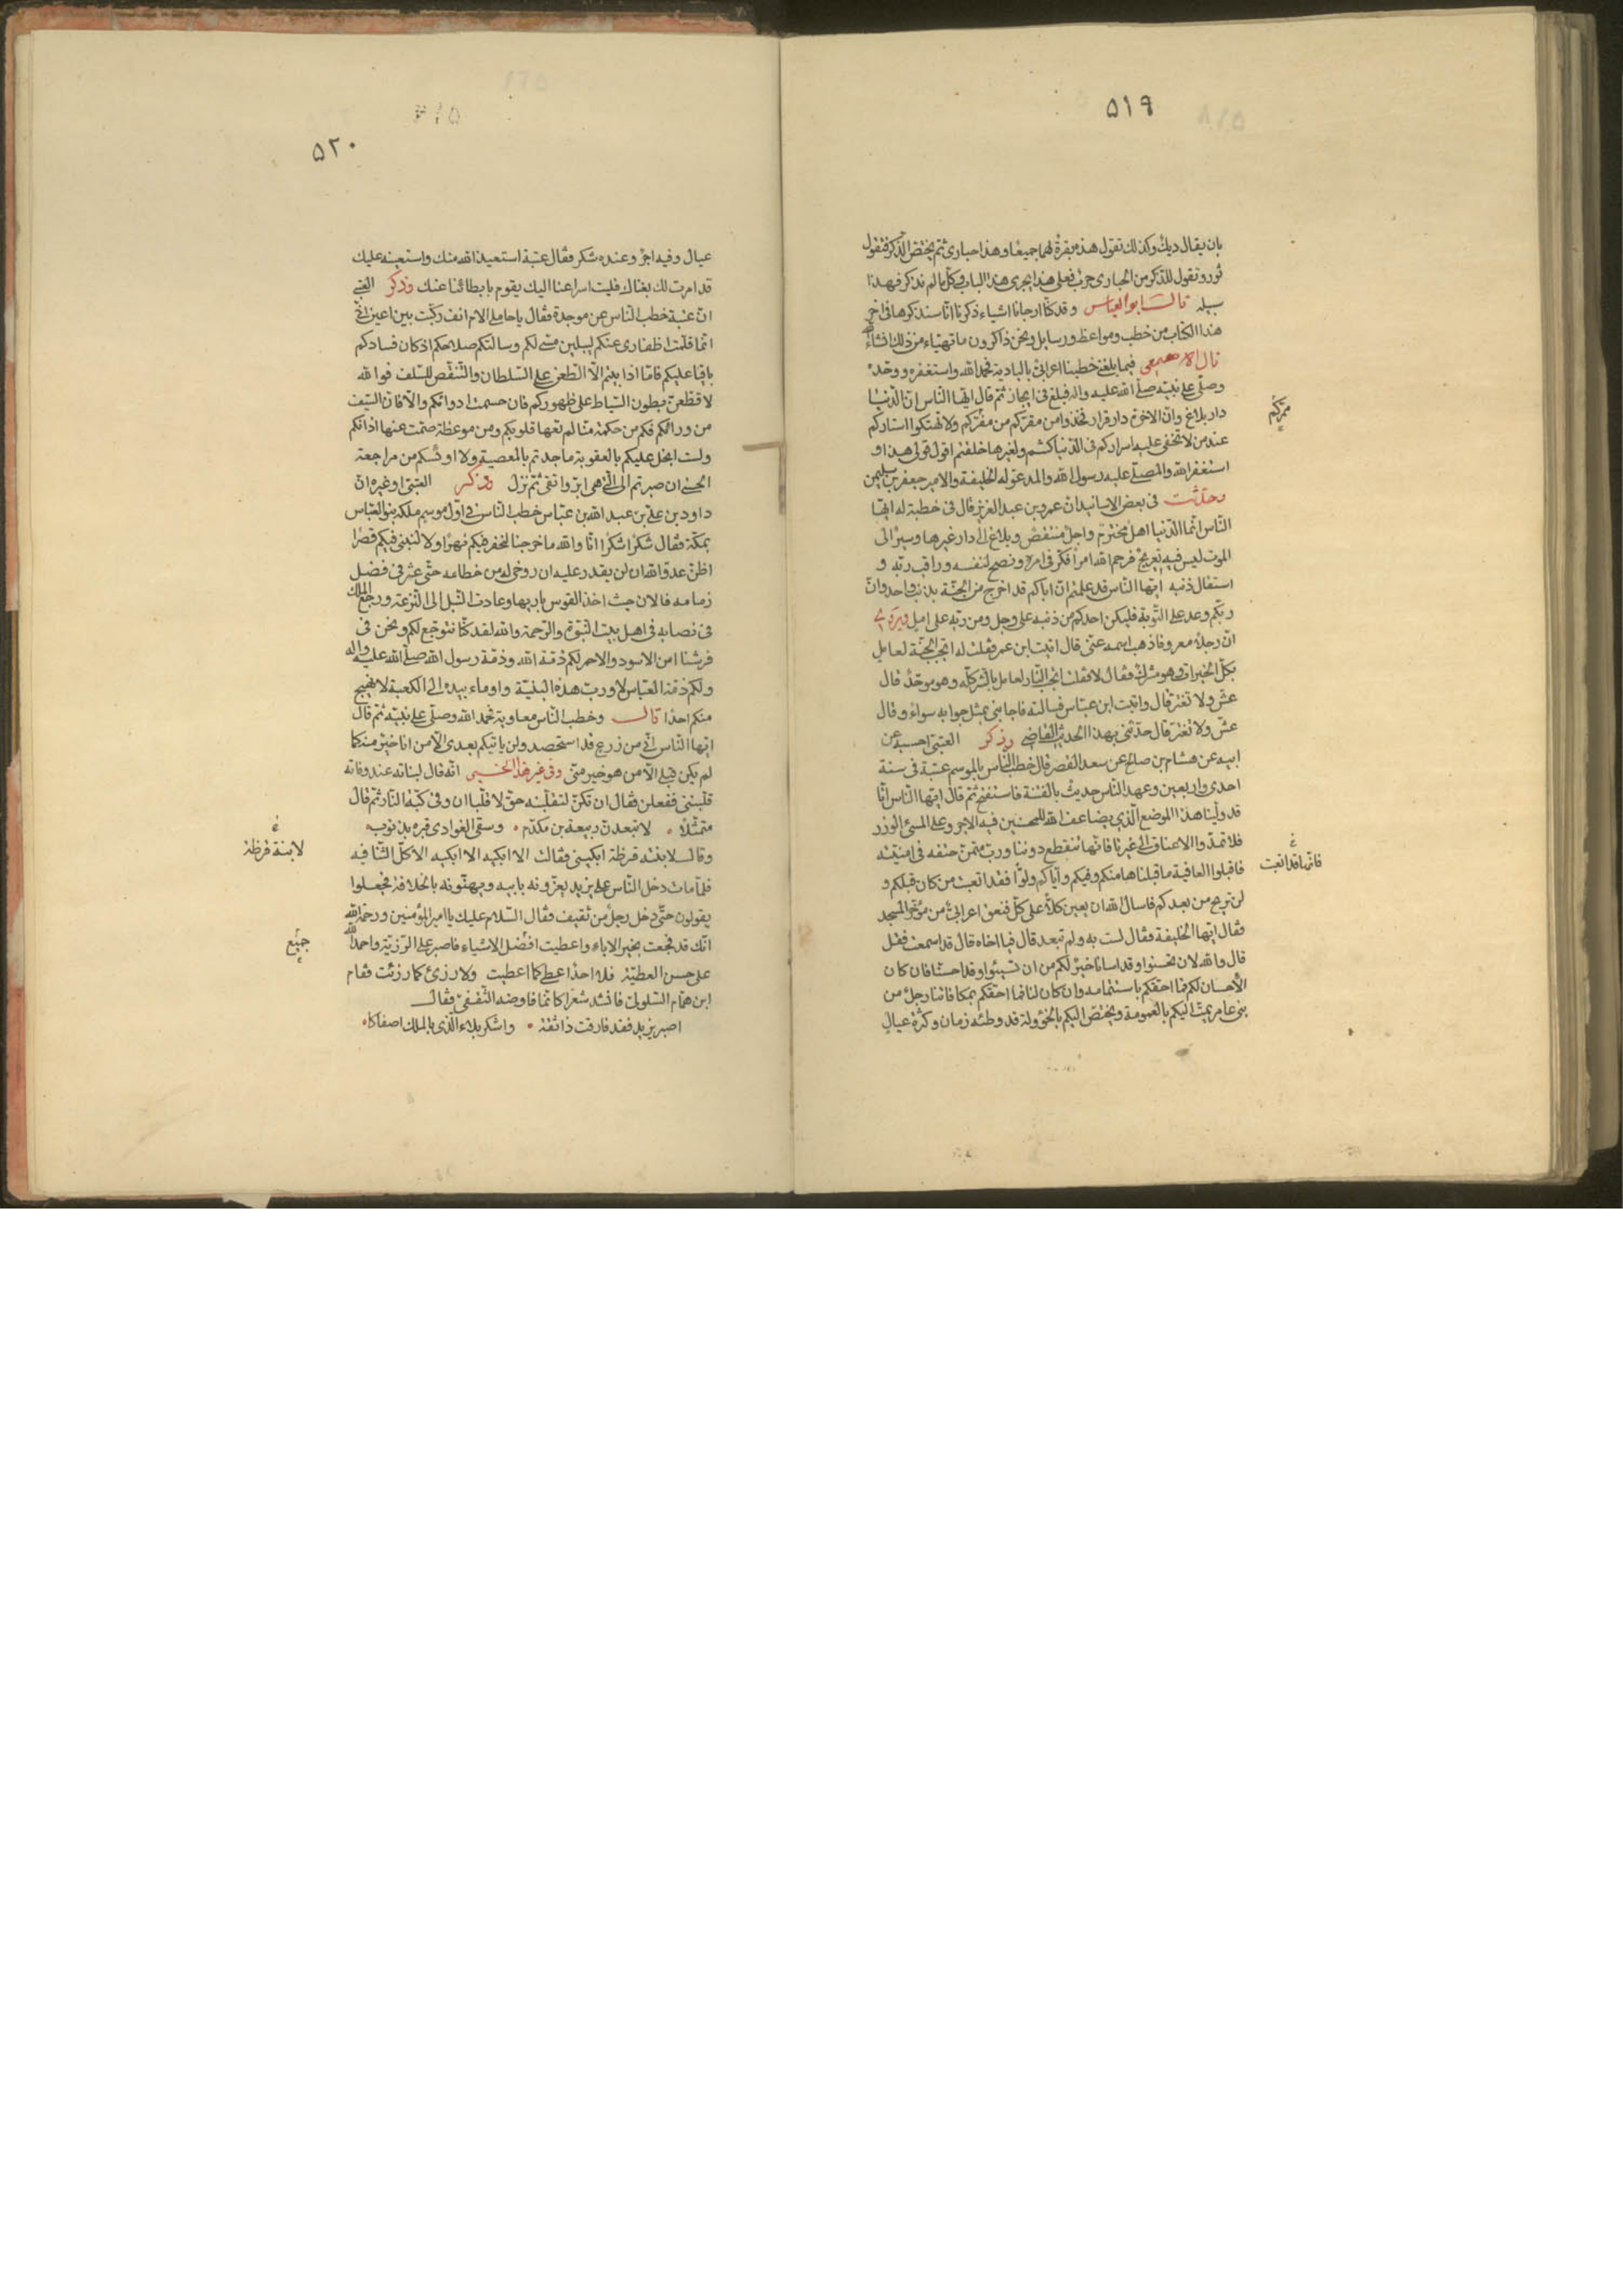 ٥١٩
بان يقال ديك وكذلك تقول هذه بقرة لهما جميعا وهذا حبارى ثم يختص الذكر فتقول
ثور وتقول للذكر من الحبارى خرب فعلى هذا يجرى هذا الباب وكل ما لم نذكر فهذا
سبيله قال ابو العباس وقد كنا ارجانا اشياء ذكرنا انا سنذكرها فى اخر
هذا الكتاب من خطب ومواعظ ورسايل ونحن ذاكرون ما تهياء من ذلك انشاء الله
قال الاصمعى فيما بلغنى خطبنا اعرابى بالبادية فحمد الله واستغفره ووحده
وصلى على نبيه صلى الله عليه واله فبلغ فى ايجاز ثم قال ايها الناس ان الدنيا
دار بلاغ وان الاخرة دار قرار فخذوا من مقركم من مفركم ولا تهتكوا استاركم
ممركم
عند من لا تخفى عليه اسراركم فى الدنيا كنتم ولغيرها خلقتم اقول قولى هذا و
استغفر الله والمصلى عليه رسول الله والمدعو له الخليفة والامير جعفر بن سليمن
وحدثت فى بعض الاسانيد ان عمر بن عبد العزيز قال فى خطبة له ايها
الناس انما الدنيا اهل مخترم واجل منتقض وبلاغ الى دار غيرها وسير الى
الموت ليس فيه تعريج فرحم الله امرأ فكر فى امره ونصح لنفسه وراقب ربه و
استقال ذنبه ايها الناس قد علمتم ان اباكم قد اخرج من الجنة بذنب واحد وان
ربكم وعد على التوبة فليكن احدكم من ذنبه على وجل ومن ربه على امل ويروى
ان رجلا معروفا ذهب اسمه عنى قال اتيت ابن عمر فقلت له اتجب الجنة لعامل
بكل الخيرات وهو مشرك فقال لا فقلت اتجب النار لعامل بالشر كله وهو موحد قال
عش ولا تغتر قال واتيت ابن عباس فسالته فاجابنى بمثل جوابه سواء وقال
عش ولا تغتر قال حدثنى بهذا الحديث القاضى وذكر العتبى احسبه عن
ابيه عن هشام بن صالح عن سعد القصر قال خطب الناس بالموسم عتبة فى سنة
احدى واربعين وعهد الناس حديث بالفتنة فاستفتح ثم قال ايها الناس انا
قد ولينا هذا الموضع الذى يضاعف الله للمحسنين فيه الاجر وعلى المسئ الوزر
فلا تمدوا الاعناق الى غيرنا فانها تنقطع دوننا ورب متمن حتفه فى امنيته
فاقبلوا العافية ما قبلناها منكم وفيكم واياكم ولوا فقد اتعبت من كان قبلكم و
فانها قد اتعبت
لن تريح من بعدكم فاسال الله ان يعين كلا على كل فنعق اعرابى من مؤخر المسجد
فقال ايها الخليفة فقال لست به ولم تبعد قال فيا اخاه قال قد اسمعت فقل
قال والله لان تحسنوا وقد اسانا خير لكم من ان تسيئوا وقد احسنا فان كان
الاحسان لكم فما احقكم باستتمامه وان كان لنا فما احقكم بمكافاتنا رجل من
بنى عامر يمت اليكم بالعمومة ويختص اليكم بالخؤولة قد وطئه زمان وكثرة عيال
٥٢٠
عيال وفيه اجر وعنده شكر فقال عتبة استعيذ الله منك واستعينه عليك
قد امرت لك بغناك فليت اسراعنا اليك يقوم بابطائنا عنك وذكر العتبى
ان عتبة خطب الناس عن موجدة فقال يا حاملى الام انف ركبت بين اعين انى
انما قلمت اظفارى عنكم ليلين مسى لكم وسالتكم صلاحكم اذ كان فسادكم
باقيا عليكم فاما اذا ابيتم الا الطعن على السلطان والتنقص للسلف فوالله
لاقطعن بطون السياط على ظهوركم فان حسمت ادواءكم والا فان السيف
من ورائكم فكم من حكمة منا لم تعها قلوبكم ومن موعظة صمت عنها اذانكم
ولست ابخل عليكم بالعقوبة ما جدتم بالمعصية ولا اوئسكم من مراجعة
الحسنى ان صرتم الى التى هى ابر واتقى ثم نزل وذكر العتبى او غيره ان
داود بن على بن عبد الله بن عباس خطب الناس فى اول موسم ملكه بنو العباس
بمكة فقال شكرا شكرا انا والله ما خرجنا لنحفر فيكم نهرا ولا لنبنى فيكم قصرا
اظن عدو الله ان لن يقدر عليه ان روخى له من خطامه حتى عثر فى فضل
زمامه فالان حيث اخذ القوس باريها وعادت النبل الى النزعة ورجع الملك
فى نصابه فى اهل بيت النبوة والرحمة والله لقد كنا نتوجع لكم ونحن فى
فرشنا امن الاسود والاحمر لكم ذمة الله وذمة رسول الله صلى الله عليه واله
ولكم ذمة العباس لا ورب هذه البنية واوماء بيده الى الكعبة لا نهيج
منكم احدا قال وخطب الناس معاوية فحمد الله وصلى على نبيه ثم قال
ايها الناس انى من زرع قد استحصد ولن ياتيكم بعدى الا من انا خير منه كما
لم يكن قبلى الا من هو خير منى وفى غير هذا الخبر انه قال لبناته عند وفاته
قلبننى ففعلن فقال انكن لتقلبنه حولا قلبا ان وقى كبة النار ثم قال
متمثلا لا تبعدن ربيعة بن مكدم وسقى الغوادى قبره بذنوب
وقال لابنته قرظة ابكينى فقالت الا ابكيه الا ابكيه الا كل الثنا فيه
لابنة قرظة
فلما مات دخل الناس على يزيد يعزونه بابيه ويهنونه بالخلافة فجعلوا
يقولون حتى دخل رجل من ثقيف فقال السلام عليك يا امير المؤمنين ورحمة الله
انك قد فجعت بخير الاباء واعطيت افضل الاشياء فاصبر على الرزية واحمد الله
جميع
على حسن العطية فلا احد اعطى كما اعطيت ولا رزئ كما رزئت فقام
ابن همام السلولى فانشد شعرا كانما فاوضه الثقفى فقال
اصبر يزيد فقد فارقت ذا ثقة واشكر بلاء الذى بالملك اصفاكا